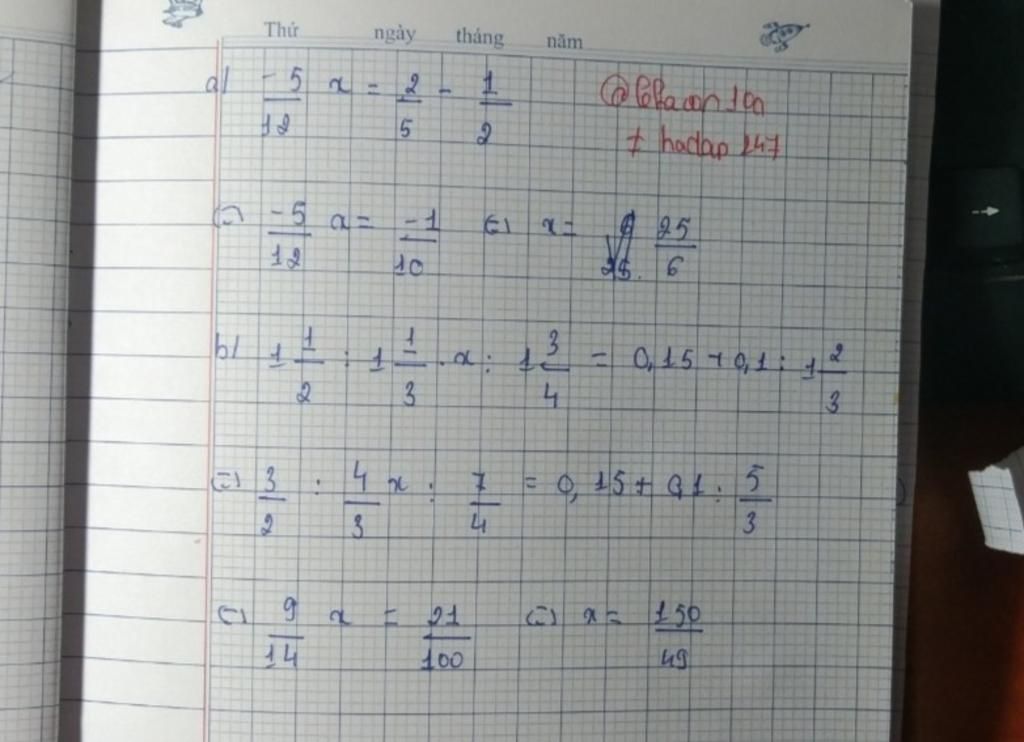 Thứ ngày tháng năm
a) -5/12 x = 2/5 - 1/2
+ hadap 247
(=) -5/12 x = -1/10 (=) x = 25/6
b) 1 1/2 : 1 1/3 . x : 1 3/4 = 0,15 + 0,1 : 1 2/3
(=) 3/2 : 4/3 x : 7/4 = 0,15 + 0,1 : 5/3
(=) 9/14 x = 21/100 (=) x = 150/49